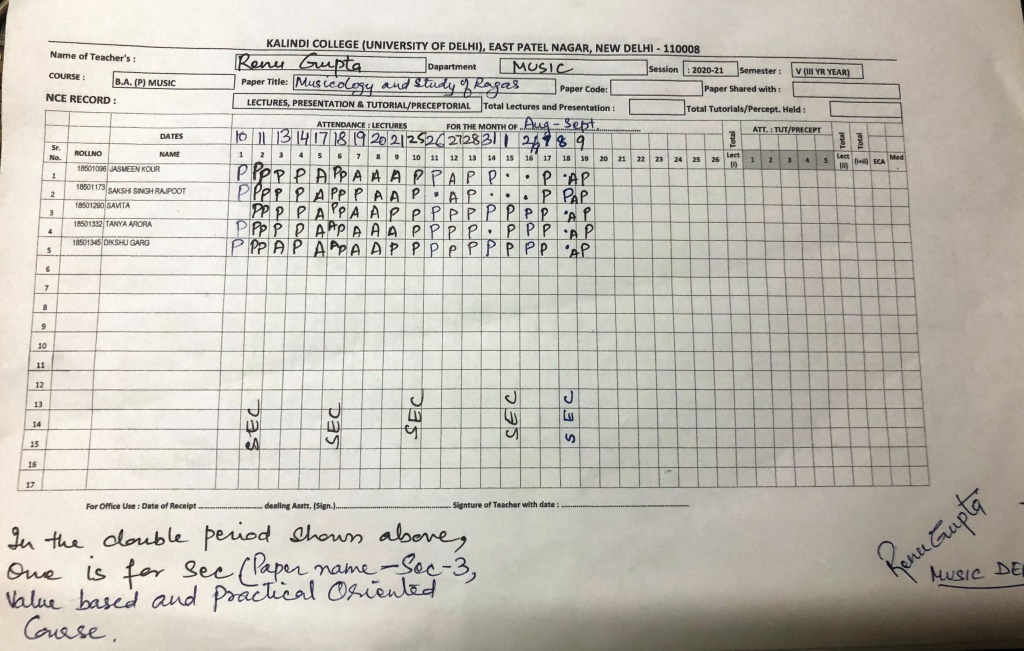 KALINDI COLLEGE (UNIVERSITY OF DELHI), EAST PATEL NAGAR, NEW DELHI - 110008
Name of Teacher's : Renu Gupta Dapartment MUSIC Session : 2020-21 Semester : V (III YR YEAR)
COURSE : B.A. (P) MUSIC Paper Title: Musicology and Study of Ragas Paper Code: Paper Shared with :
NCE RECORD : LECTURES, PRESENTATION & TUTORIAL/PRECEPTORIAL Total Lectures and Presentation : Total Tutorials/Percept. Held :
ATTENDANCE : LECTURES FOR THE MONTH OF Aug - Sept. Total ATT. : TUT/PRECEPT Total Total
DATES 10 11 13 14 17 18 19 20 21 25 26 27 28 31 1 2 8 9
Sr. No. ROLLNO NAME 1 2 3 4 5 6 7 8 9 10 11 12 13 14 15 16 17 18 19 20 21 22 23 24 25 26 Lect (I) 1 2 3 4 5 Lect (II) (I+II) ECA Med
1 18501096 JASMEEN KOUR P PP P P A PP A A A P P A P P . . P .A P
2 18501173 SAKSHI SINGH RAJPOOT P PP P P A PP P A A P . A P . . . P PA P
3 18501290 SAVITA PP P P A PP A A P P P P P P P P P .A P
4 18501332 TANYA ARORA P PP P P A AP A A A P P P P . P P P .A P
5 18501345 DIKSHU GARG P PP A P A AP A A P P P P P P P P P .A P
6
7
8
9
10
11
12
13
14
15
16
17
SEC SEC SEC SEC SEC
For Office Use : Date of Receipt dealing Asstt. (Sign.) Signture of Teacher with date :
In the double period shown above,
One is for Sec (Paper name - Sec-3,
Value based and Practical Oriented
Course.
Renu Gupta
MUSIC DE